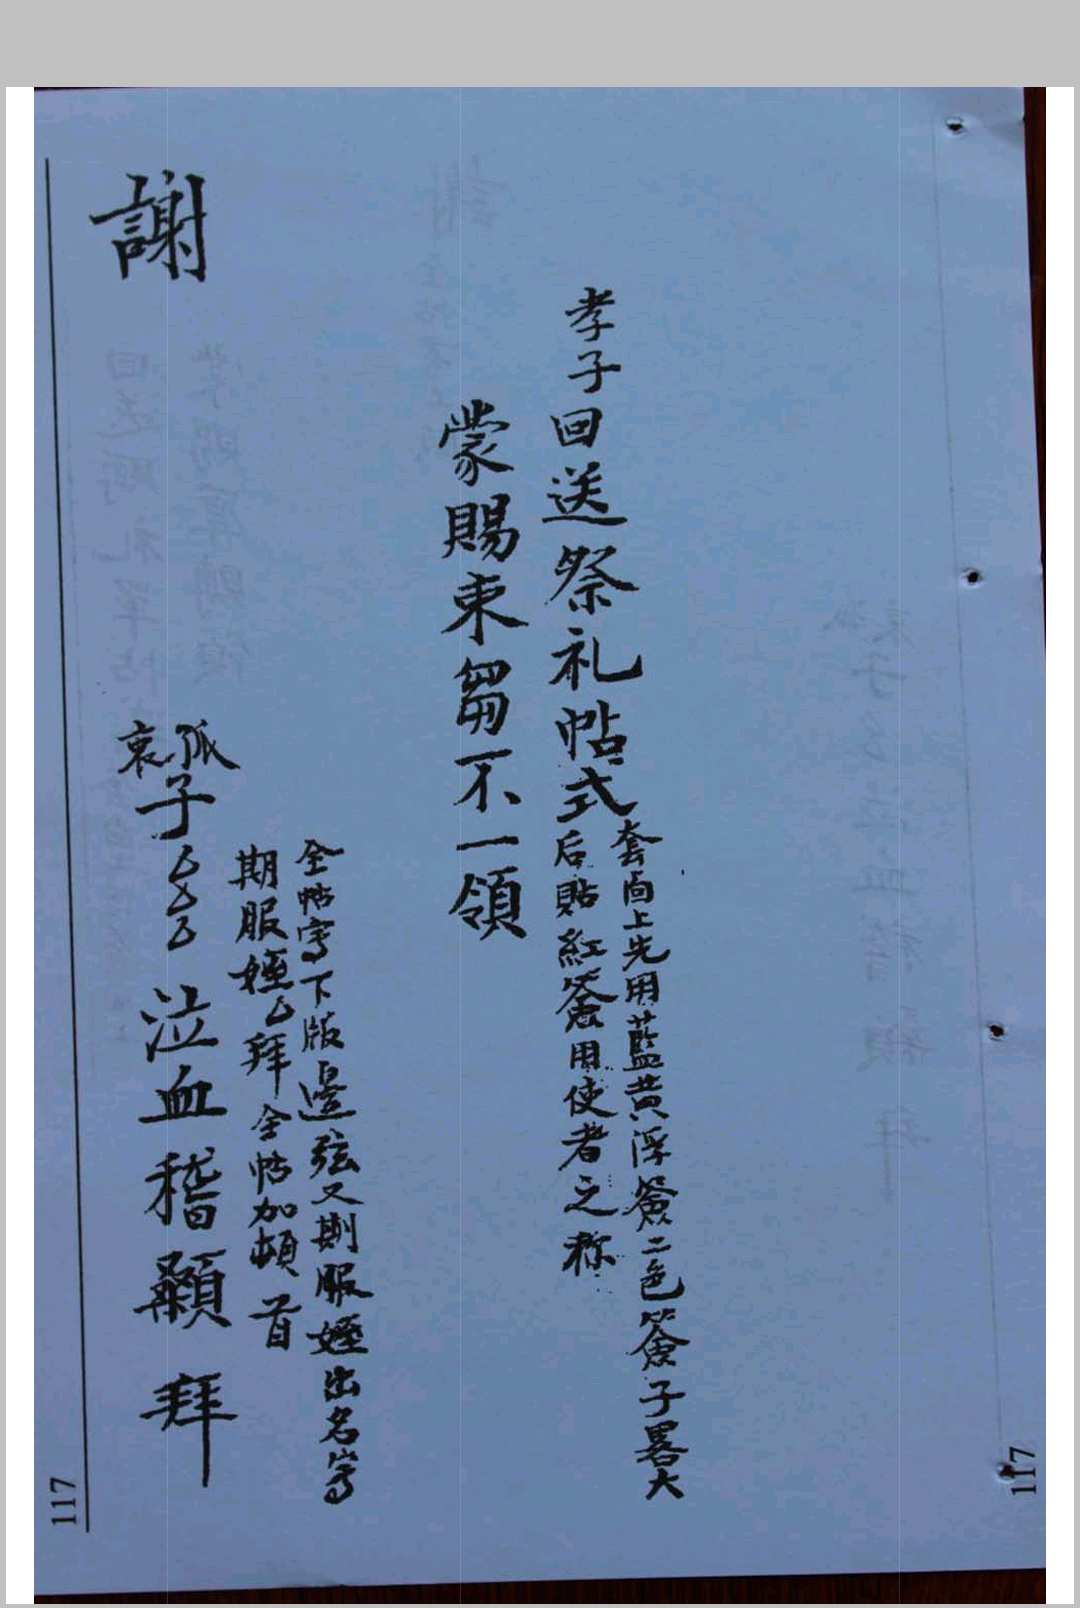 孝子回送祭礼帖式
套面上先用藍黄浮簽二色簽子畧大
后貼紅簽用使者之称
蒙賜束芻不一領
全帖寫下版邊弦又期服姪出名寫
期服姪厶拜全帖加頓首
孤
哀
子厶厶厶泣血稽顙拜
謝
117
117